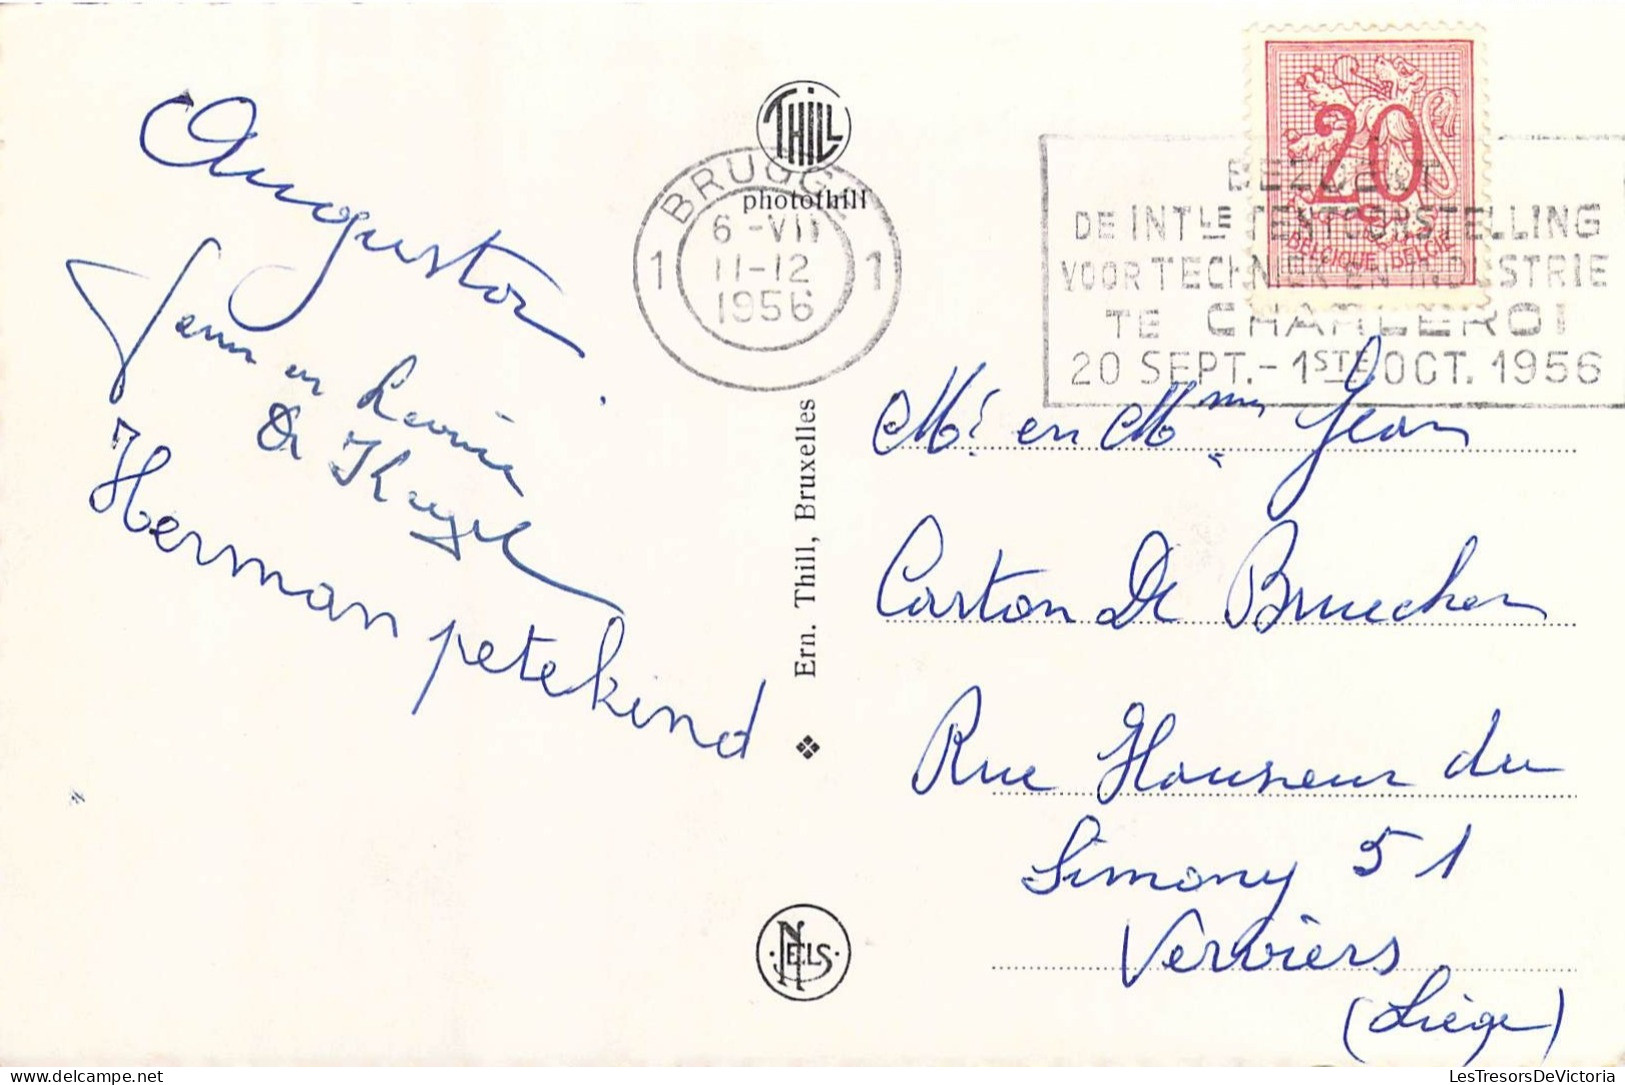 Augustor
en
Herman petekind
THILL
photothill
BRUGGE
1 1
6-VII
11-12
1956
20
BELGIQUE BELGIE
BEZOEKT
DE INTLE TENTOONSTELLING
VOOR TECHNIEK EN INDUSTRIE
TE CHARLEROI
20 SEPT. - 1STE OCT. 1956
Ern. Thill, Bruxelles
NELS
Mr en Mme Jean
Carton De Bruecher
Rue Houseur du
Simony 51
Verviers
(Liège)
LesTresorsDeVictoria